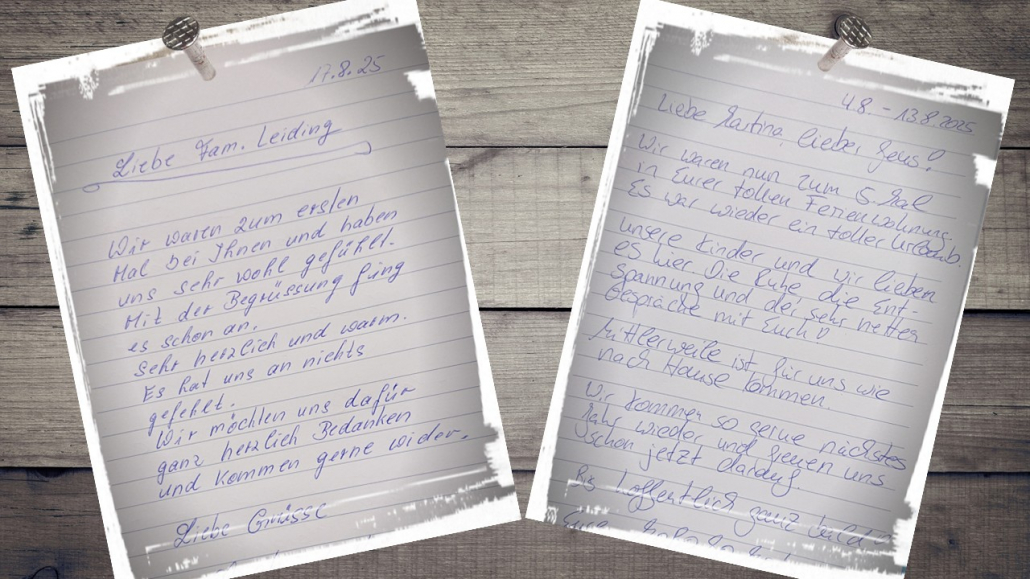 17.8.25
Liebe Fam. Leiding
Wir waren zum ersten
Mal bei Ihnen und haben
uns sehr wohl gefühlt.
Mit der Begrüssung fing
es schon an.
Sehr herzlich und warm.
Es hat uns an nichts
gefehlt.
Wir möchten uns dafür
ganz herzlich Bedanken
und kommen gerne wider.
Liebe Grüsse
4.8. - 13.8.2025
Liebe Martina, lieber Jens!
Wir waren nun zum 5. Mal
in Eurer tollen Ferienwohnung.
Es war wieder ein toller Urlaub.
Unsere Kinder und wir lieben
es hier. Die Ruhe die Ent-
spannung und die sehr netten
Gespräche mit Euch
Mittlerweile ist für uns wie
nach Hause kommen.
Wir kommen so gerne nächstes
Jahr wieder und freuen uns
schon jetzt darauf.
Bis hoffentlich ganz bald
Eure